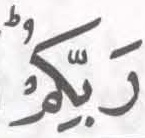 رَبِّكُمْؕ